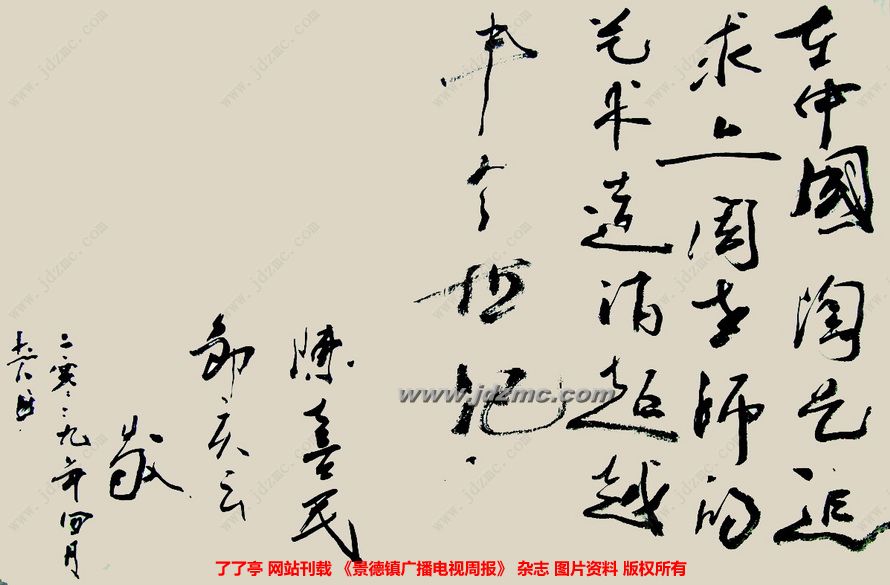 在中國陶艺追
求上周老师的
艺术造诣超越
半个世纪
陳喜民
庆云
敬
二零零九年四月
www.jdzmc.com
了了亭 网站刊载 《景德镇广播电视周报》 杂志 图片资料 版权所有